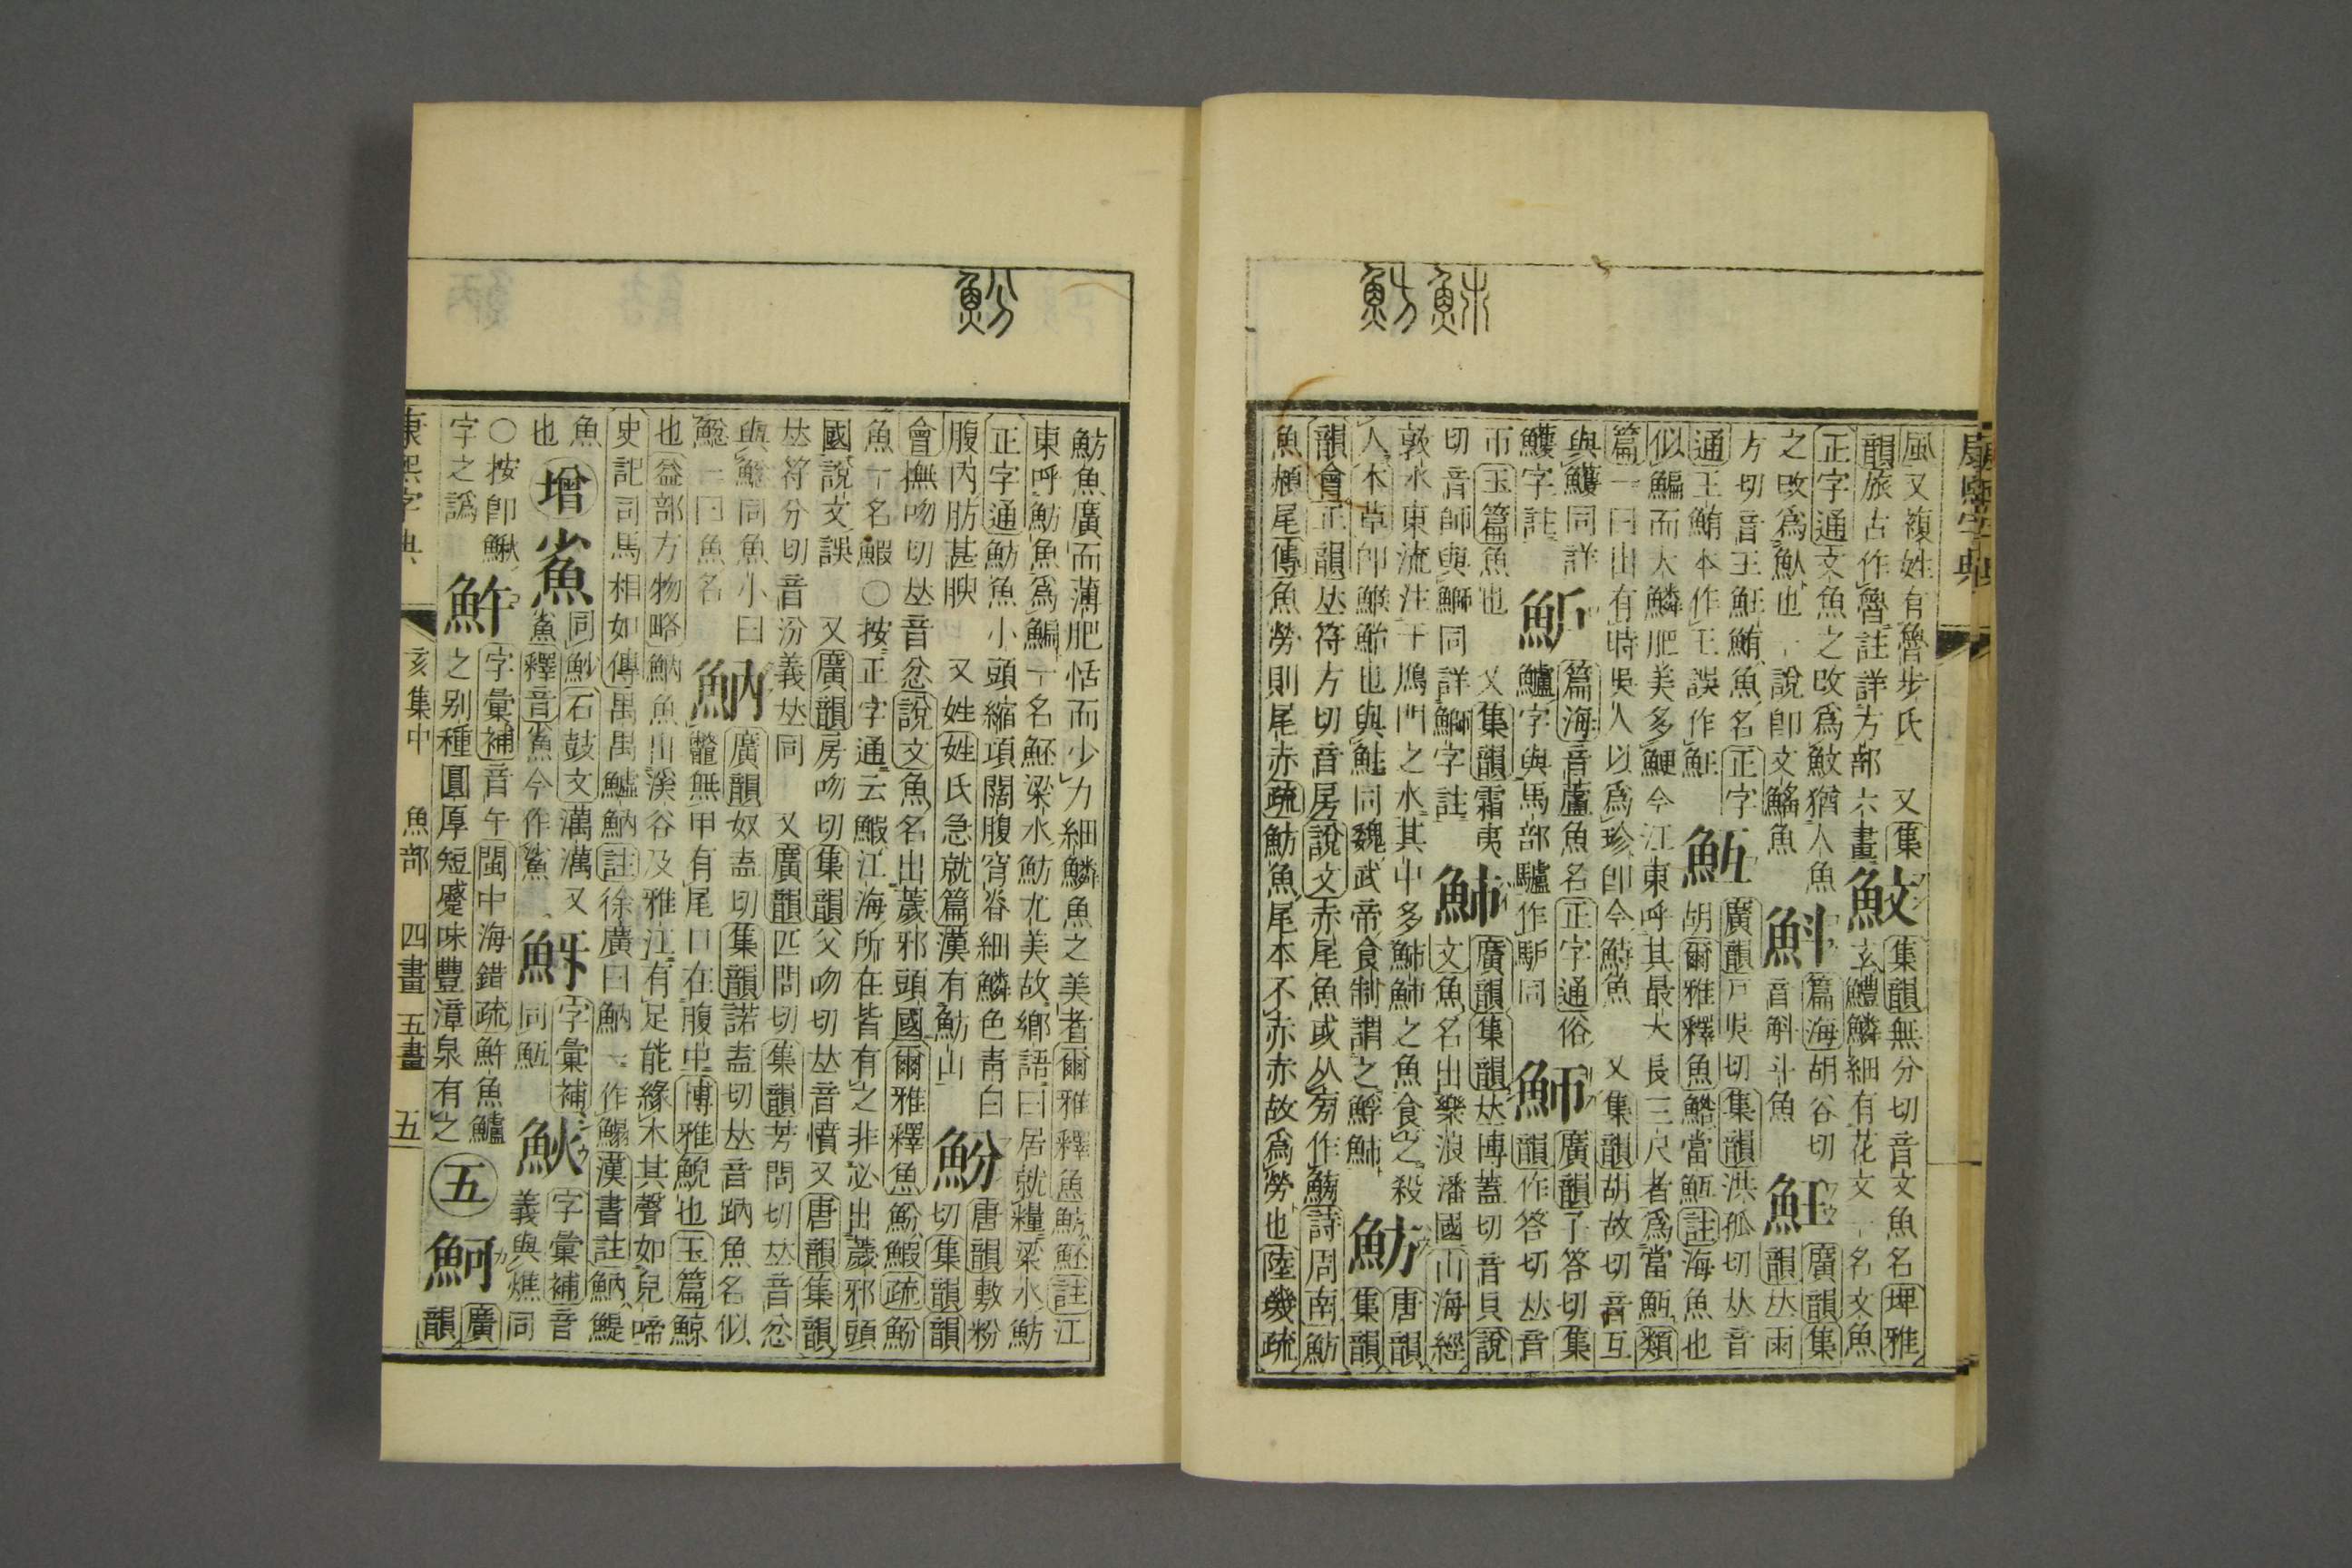 鮇魴
康熙字典
風又複姓有魯步氏 又集 魰 集韻無分切音文魚名埤雅
韻旅古作魯註詳方部六畫 玄鱧鱗細有花文一名文魚
正字通文魚之攺爲魰猶人魚 篇海胡谷切 魱 廣韻集
之攺爲魜也一說卽文鰩魚 音斛斗魚 韻𠀤雨
方切音王魟鮪魚名正字 魱 廣韻戸吳切集韻洪孤切𠀤音
通王鮪本作王誤作魟 胡爾雅釋魚鮥當魱註海魚也
似鯿而大鱗肥美多鯁今江東呼其最大長三尺者爲當魱類
篇一曰山有時吳人以爲珍卽今鰣魚 又集韻胡故切音互
與鱯同詳 魲 篇海音蘆魚名正字通俗 魳 廣韻子答切集
鱯字註 鱸字與馬部驢作馿同 韻作答切𠀤音
帀玉篇魚也 又集韻霜夷 𩵖 廣韻集韻𠀤博蓋切音貝說
切音師與鰤同詳鰤字註 文魚名出樂浪潘國山海經
敦水東流注于鴈門之水其中多䰽䰽之魚食之殺 魴 唐韻
人本草卽鯸鮐也與鮭同魏武帝食制謂之䰽 集韻
韻會正韻𠀤符方切音房說文赤尾魚或从㫄作鰟詩周南魴
魚赬尾傳魚勞則尾赤疏魴魚尾本不赤赤故爲勞也陸璣疏
魵
魴魚廣而薄肥恬而少力細鱗魚之美者爾雅釋魚魴魾註江
東呼魴魚爲鯿一名魾梁水魴尤美故鄉語曰居就糧梁水魴
正字通魴魚小頭縮項闊腹穹脊細鱗色靑白 魵 唐韻敷粉
腹內肪甚腴 又姓姓氏急就篇漢有魴山 切集韻韻
會撫吻切𠀤音忿說文魚名出薉邪頭國爾雅釋魚魵鰕疏魵
魚一名鰕〇按正字通云鰕江海所在皆有之非必出薉邪頭
國說文誤 又廣韻房吻切集韻父吻切𠀤音憤又唐韻集韻
𠀤符分切音汾義𠀤同 又廣韻匹問切集韻芳問切𠀤音忿
與鰺同魚小曰 魶 廣韻奴盍切集韻諾盍切𠀤音䟜魚名似
一曰魚名 鼈無甲有尾口在腹中博雅鯢也玉篇鯨
也益部方物略魶魚出溪谷及雅江有足能緣木其聲如兒啼
史記司馬相如傳禺禺鱋魶註徐廣曰魶一作鰨漢書註魶鯷
魚 同魦石鼓文又 字彙補 䲴 字彙補音
也 增 釋音今作鯊 同魱 義與𤓪同
〇按卽鰍 䰻 字彙補音午閩中海錯疏魚鱸
字之譌 之別種圓厚短蹙味豐漳泉有之 五 魺 廣
韻
康熙字典 亥集中 魚部 四畫 五畫 五